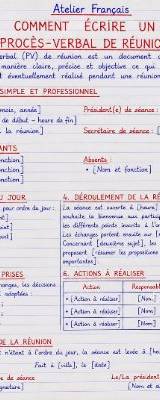 Atelier Français
COMMENT ÉCRIRE UN
PROCÈS-VERBAL DE RÉUNIO
erbal (PV) de réunion est un document o
manière claire, précise et objective ce qui
t éventuellement réalisé pendant une réunion
SIMPLE ET PROFESSIONNEL
mois, année]
de début - heure de fin
la réunion]
Président(e) de séance :
Secrétaire de séance :
ANTS
onction]
onction]
onction]
Absents :
• [Nom et fonction]
U JOUR
pour ordre du jour :
t]
t]
t]
4. DÉROULEMENT DE LA RÉ
La séance est ouverte à [heure]
souhaite la bienvenue aux partici
les différents points inscrits à l'
Les échanges portent ensuite sur
Concernant [deuxième sujet], les
proposent [résumer les propositions
importantes].
PRISES
changes, les décisions
adoptées :
]
]
]
6. ACTIONS À RÉALISER
Action
Responsabl
• [Action à réaliser]
[Nom]
• [Action à réaliser]
[Nom]
• [Action à réaliser]
[Nom]
DE LA RÉUNION
n'étant à l'ordre du jour, la séance est levée à [he
Fait à [ville], le [date]
de séance
Le/La président
gnature]
[Nom et